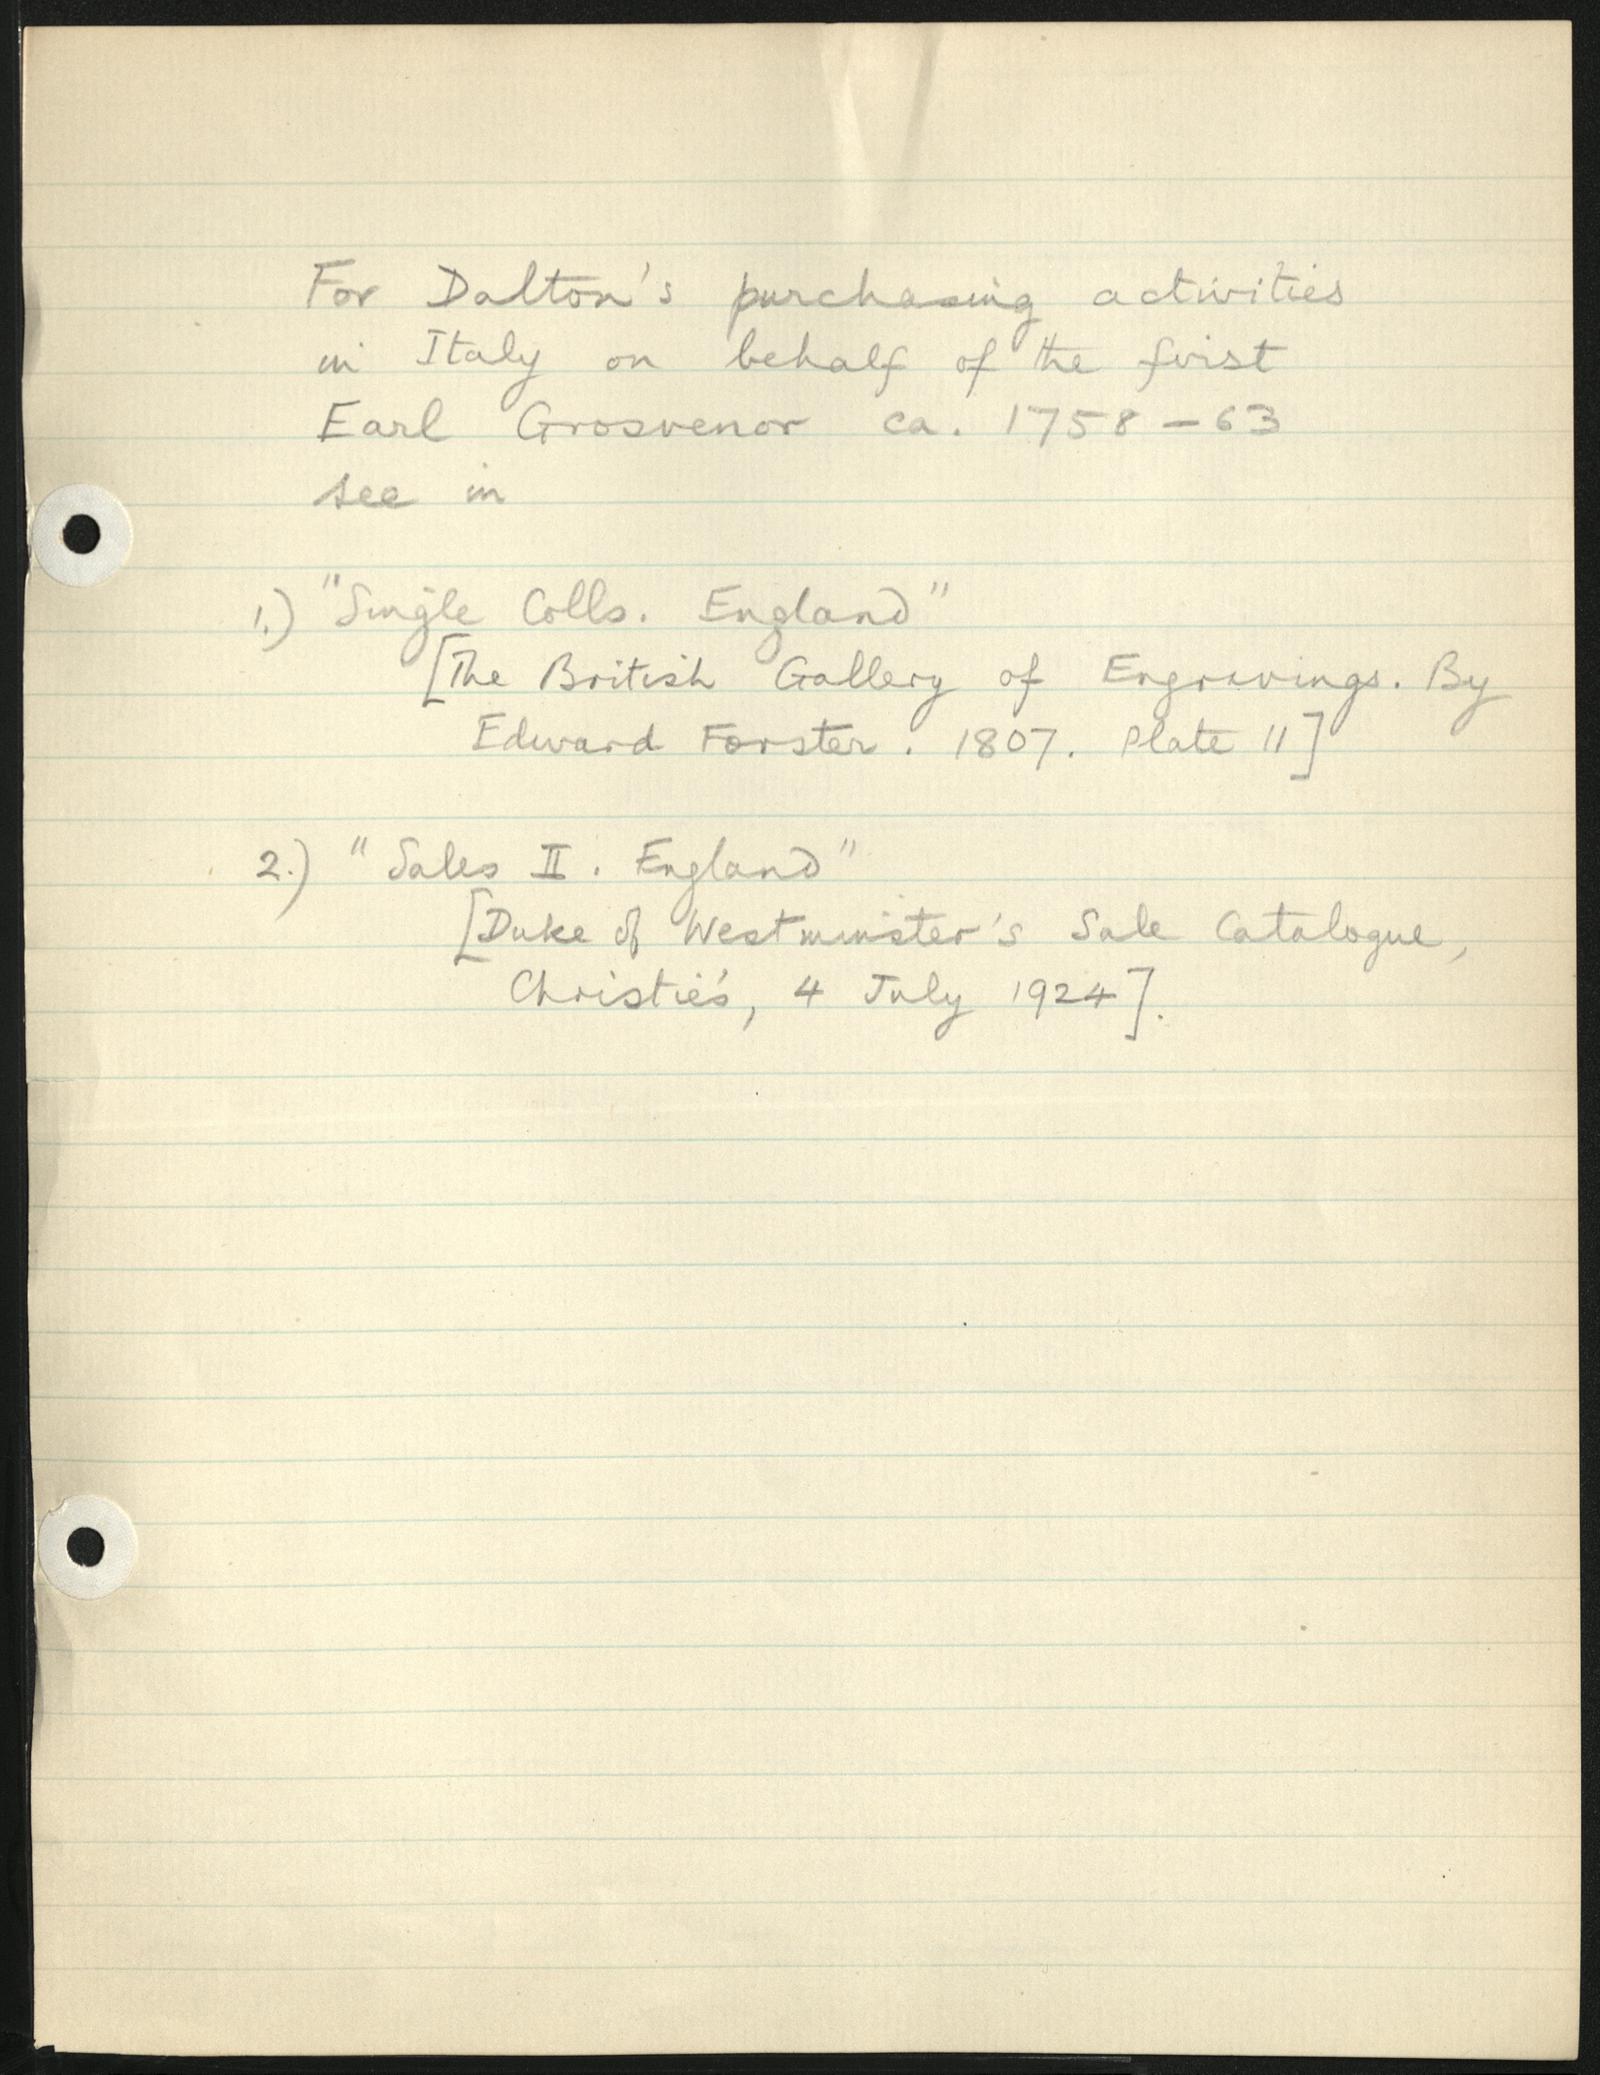 For Dalton's purchasing activities
in Italy on behalf of the first
Earl Grosvenor ca. 1758-63
see in
1.) "Single Colls. England"
[The British Gallery of Engravings. By
Edward Forster. 1807. Plate 11]
2.) "Sales II. England"
[Duke of Westminster's Sale Catalogue,
Christie's, 4 July 1924].